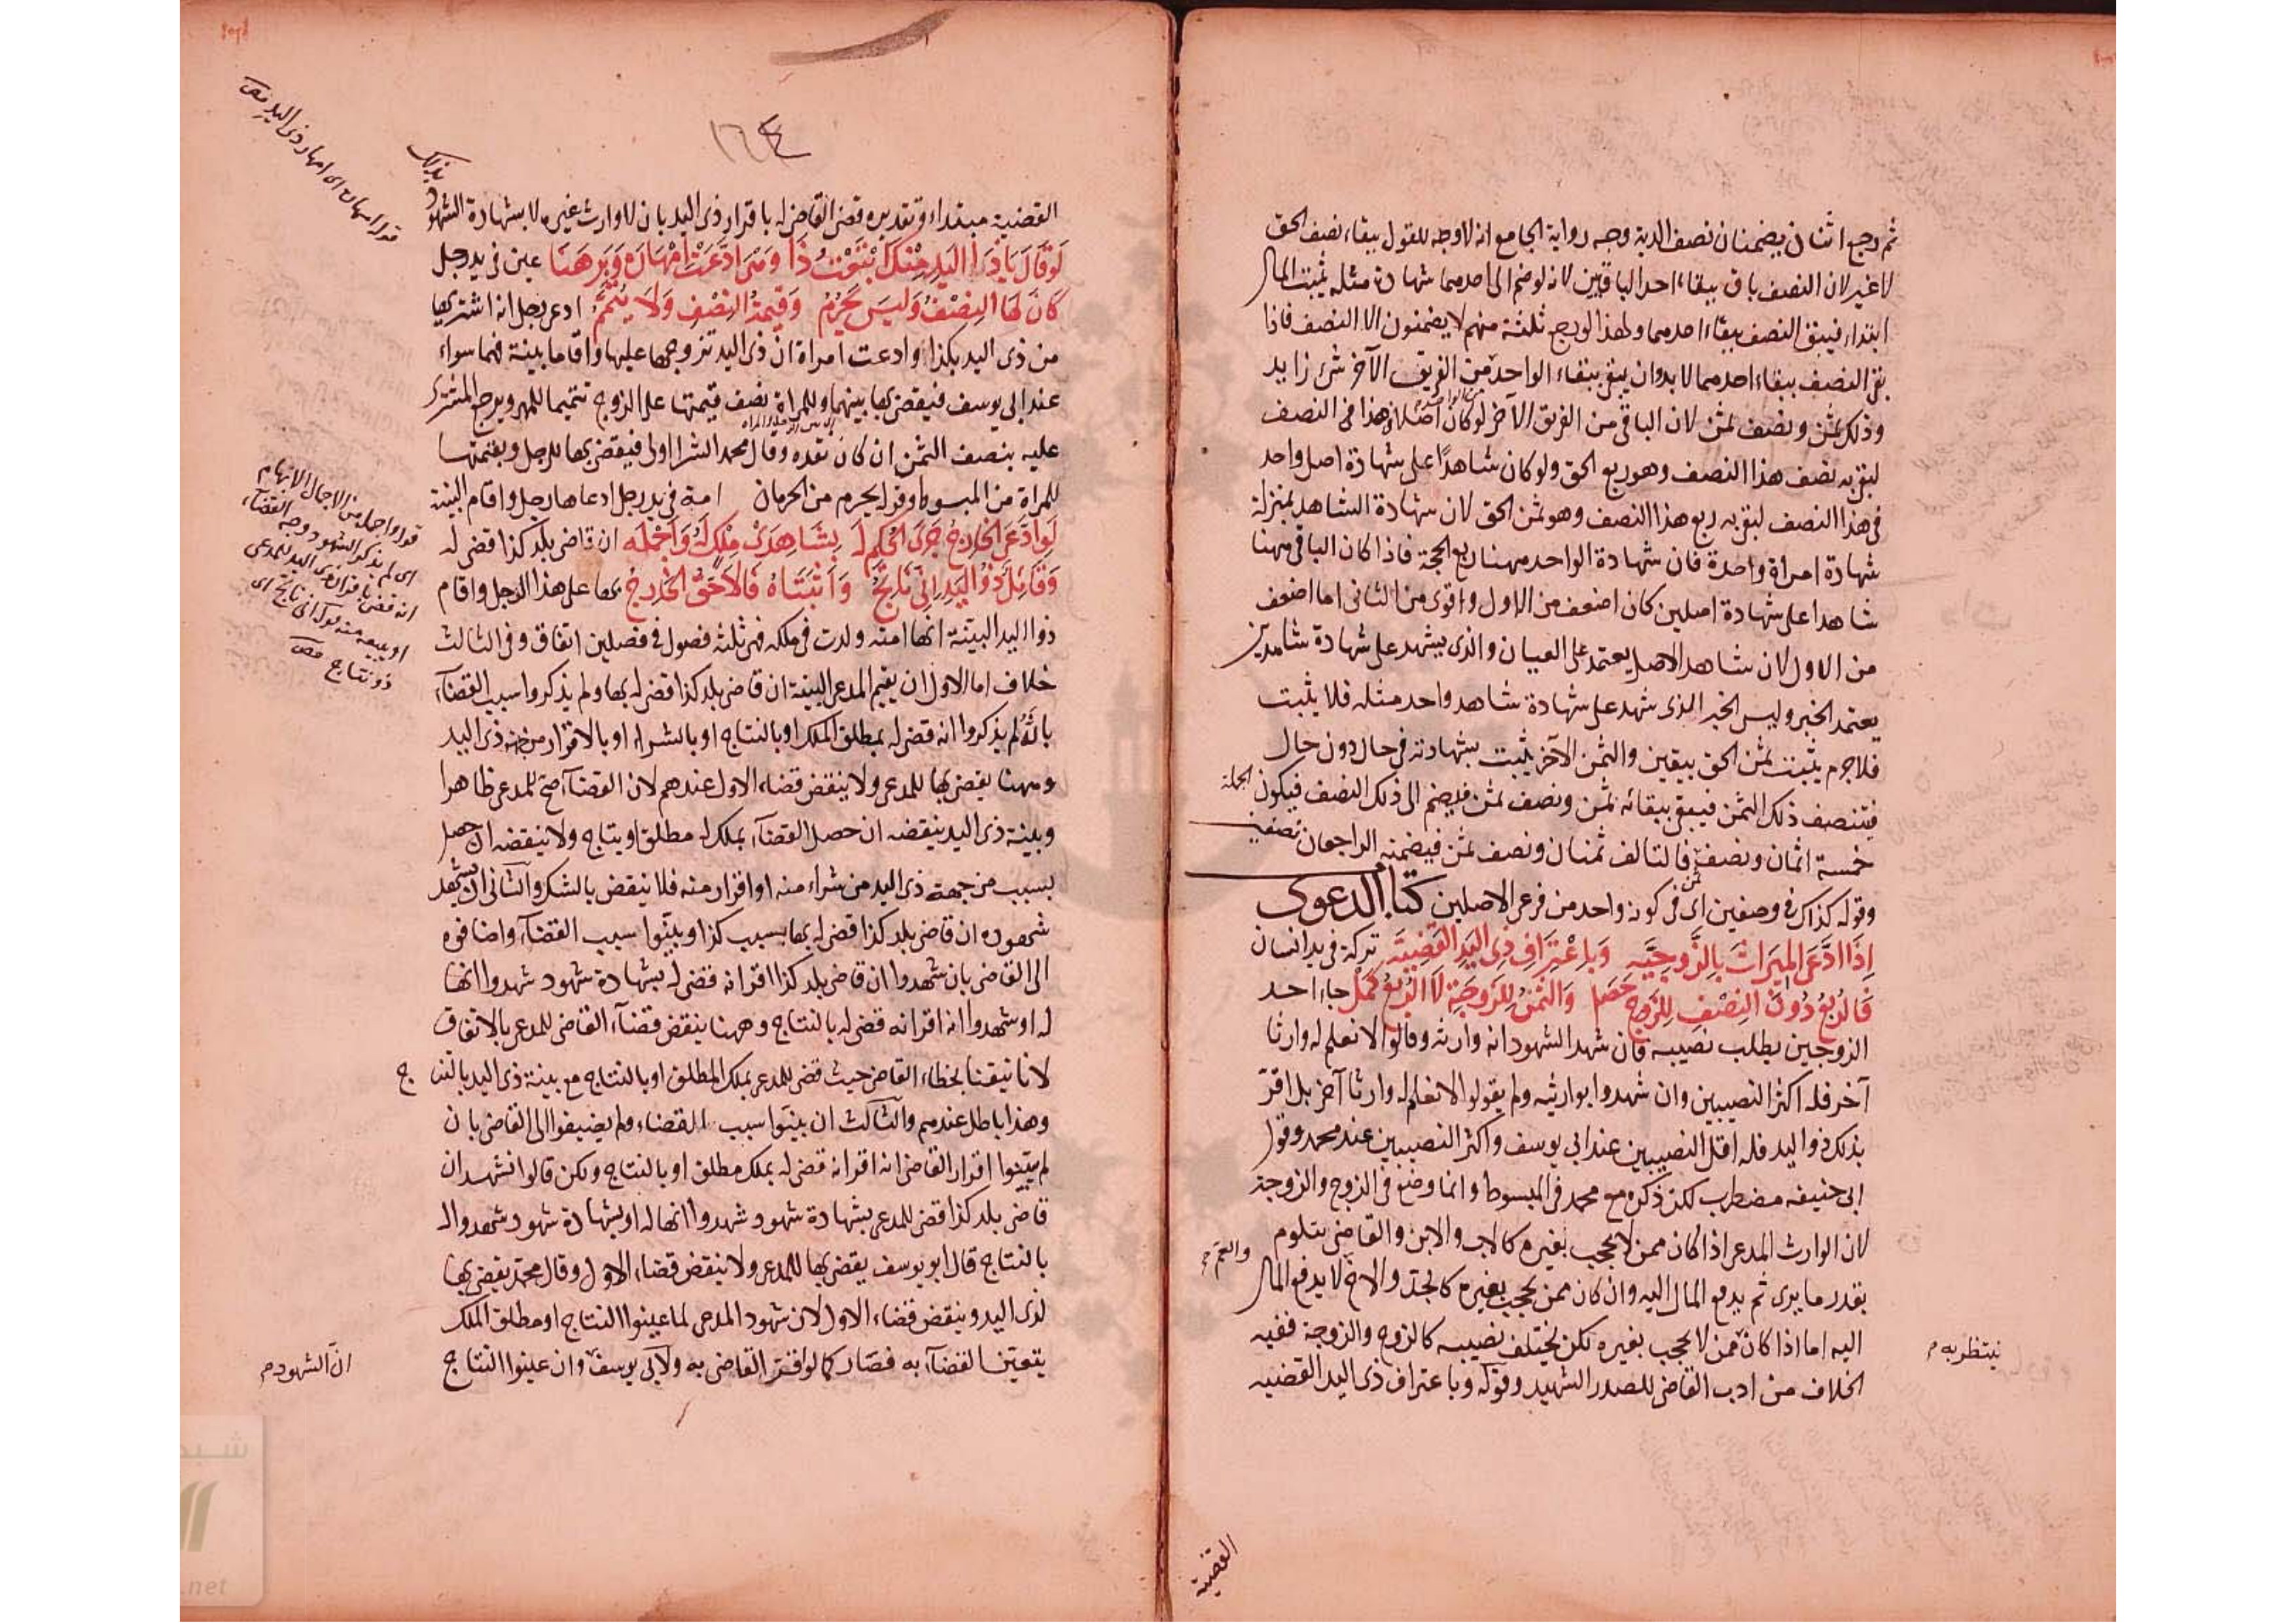 ثم رجع اثنان يضمنان نصف الدية وجه رواية الجامع انه لا وجه للقول ببقاء نصف الحق
لا غير لان النصف باق ببقاء احد الباقيين لانه لو ضم الى احدهما شهادة مثله يثبت المال
ابتداء فيبقى النصف ببقاء احدهما ولهذا لو رجع ثلثة منهم لا يضمنون الا النصف فاذا
بقى النصف ببقاء احدهما لا بد وان يبقى ببقاء الواحد من الفريق الآخر شئ زايد
وذلك ثمن ونصف ثمن لان الباقى من الفريق الآخر لو كان اصلا وهذا فى النصف
لبقى به نصف هذا النصف وهو ربع الحق ولو كان شاهدا على شهادة اصل واحد
فى هذا النصف لبقى به ربع هذا النصف وهو ثمن الحق لان شهادة الشاهد بمنزلة
شهادة امراة واحدة فان شهادة الواحد مهنا ربع الحجة فاذا كان الباقى مهنا
شاهدا على شهادة اصلين كان اضعف من الاول واقوى من الثانى اما اضعف
من الاول لان شاهد الاصل يعتمد على العيان والذى يشهد على شهادة شاهدين
يعتمد الخبر وليس الخبر الذى شهد على شهادة شاهد واحد مثله فلا يثبت
فلا جرم يثبت ثمن الحق بيقين والثمن الآخر يثبت بشهادته فى حال دون حال
فيتنصف ذلك الثمن فيبقى ببقائه ثمن ونصف ثمن فيضم الى ذلك النصف فيكون الجملة
خمسة اثمان ونصف ثمن فالتالف ثمنان ونصف ثمن فيضمنه الراجعان نصفين
وقوله كذاك فى وصفين اى فى كونه واحد من فرعى الاصلين كتاب الدعوى
اِذَا ادَّعَى المِيرَاثَ بِالزَّوجِيَّه وَبِاعْتِرَافِ ذِى اليَدِ القَضِيَّة تركة فى يد انسان
فَالرُّبعُ دُونَ النِصْفِ لِلزَّوجِ حَصَل وَالثُمنُ لِلزَّوجَةِ لَا الرُبعُ كَمُل جاء احد
الزوجين يطلب نصيبه فان شهد الشهود انه وارثه وقالوا لا نعلم له وارثا
آخر فله اكثر النصيبين وان شهدوا بوارثيه ولم يقولوا لا نعلم له وارثا آخر بل اقرّ
بذلك ذو اليد فله اقل النصيبين عند ابى يوسف واكثر النصيبين عند محمد وقول
ابى حنيفه مضطرب لكن ذكره مع محمد فى المبسوط وانما وضع فى الزوج والزوجة
لان الوارث المدعى اذا كان ممن لا يحجب بغيره كالاب والابن والقاضى يتلوم
بقدر ما يرى ثم يدفع المال اليه وان كان ممن يحجب بغيره كالجد والاخ لا يدفع المال
والعم
اليه اما اذا كان ممن لا يحجب بغيره لكن يختلف نصيبه كالزوج والزوجة ففيه
ينتظر به م
الخلاف من ادب القاضى للصدر الشهيد وقوله وباعتراف ذى اليد القضيه
القضية
١٦٤
القضية مبتداء وتقديره قضى القاضى له باقرار ذى اليد بان لا وارث غيره لا بشهادة الشهود
بذلك
لَو قَالَ يَا ذَا اليَدِ مِنْكَ بِتَعْتُ ذَا وَمَن ادَّعَتْ اِمْهَانَ وَبَرهَنَا عين فى يد رجل
كَانَ لَهَا النِصْفُ وَليسَ يُحْرَمُ وَقِيمَةُ النِصْفِ وَلَا يُتَمَّمُ ادعى رجل انه اشتريها
من ذى اليد بكذا وادعت امراة ان ذى اليد تزوجها عليها واقاما بينة فهما سواء
عند ابى يوسف فيقضى بها بينهما وللمراة نصف قيمتها على الزوج تتميما للمهر ويرجع المشترى
عليه بنصف الثمن ان كان نقده وقال محمد الشرا اولى فيقضى بها للرجل وبقيمتها
للمراة من المبسوط وقوله يحرم من الحرمان امة فى يد رجل ادعاها رجل واقام البينة
لَو ادَّعَى الخَارِجُ جَرَى الحُكم لَه بِشَاهِدَى مِلْكٍ لَهُ وَاَجْمَلَه ان قاضى بلد كذا قضى له
وَقَائِلٌ ذُو اليَدِ اِنِّى نَاتِجٌ وَاَثْبَتَاهُ فَالاَحَقُّ الخَارِجُ بها على هذا الرجل واقام
ذو اليد البينة انها امته ولدت فى ملكه فهى ثلثة فصول فى فصلين اتفاق وفى الثالث
خلاف اما الاول ان يقيم المدعى البينة ان قاضى بلد كذا قضى له بها ولم يذكروا سبب القضآء
بانه لم يذكروا انه قضى له بمطلق الملك او بالنتاج او بالشراء او بالاقرار من جهة ذى اليد
ومهنا يقضى بها للمدعى ولا ينقض قضاء الاول عندهم لان القضآء صح للمدعى ظاهرا
وبينة ذى اليد ينقضه ان حصل القضآء بملك له مطلق او بنتاج ولا ينقضه ان حصل
بسبب من جهة ذى اليد من شراء منه او اقرار منه فلا ينقض بالشك والثانى ان يشهد
شهوده ان قاضى بلد كذا قضى له بها بسبب كذا وبينّوا سبب القضآء واضافوه
الى القاضى بان شهدوا ان قاضى بلد كذا اقر انه قضى له بشهادة شهود شهدوا انها
له او شهدوا انه اقر انه قضى له بالنتاج وههنا ينقض قضآء القاضى للمدعى بالاتفاق
لانا تيقنا بخطاء القاضى حيث قضى للمدعى بملك المطلق او بالنتاج مع بينة ذى اليد بالنتاج
وهذا باطل عندهم والثالث ان بينوا سبب القضاء ولم يضيفوا الى القاضى بان
لم يبينوا اقرار القاضى انه اقر انه قضى له بملك مطلق او بالنتاج ولكن قالوا نشهد ان
قاضى بلد كذا قضى للمدعى بشهادة شهود شهدوا انها له او بشهادة شهود شهدوا له
بالنتاج قال ابو يوسف يقضى بها للمدعى ولا ينقض قضاء الاول وقال محمد يقضى بها
لذى اليد وينقض قضاء الاول لان شهود المدعى لما عينوا النتاج او مطلق الملك
يتعين القضآء به فصار كما لو اقر القاضى به ولابى يوسف وان عينوا النتاج
ان الشهود م
قوله امهان اى امهار ذى اليد
قوله واجمله من الاجمال الابهام
اى لم يذكر الشهود وجه القضآء
انه قضى باقرار ذى اليد للمدعى
او ببيعه منه قوله انى ناتج اى
ذو نتاج